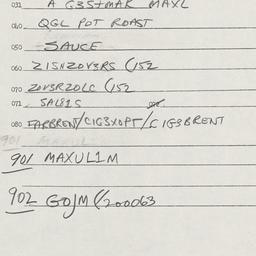 031 A G3S+MAK MAXL
040 QGL POT ROAST
050 SAUCE
060 Z1SNZOV3RS (152
070 ZOV3RZOLC (152
071 SAL81S
080 FARBREN/C1G3XOPT/C1G3BRENT
901
901 MAXUL1M
902 GOJM (/200063